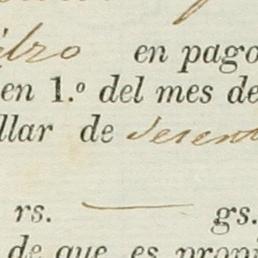 en pago
en 1.º del mes de
llar de
rs. gs.
de que es propi